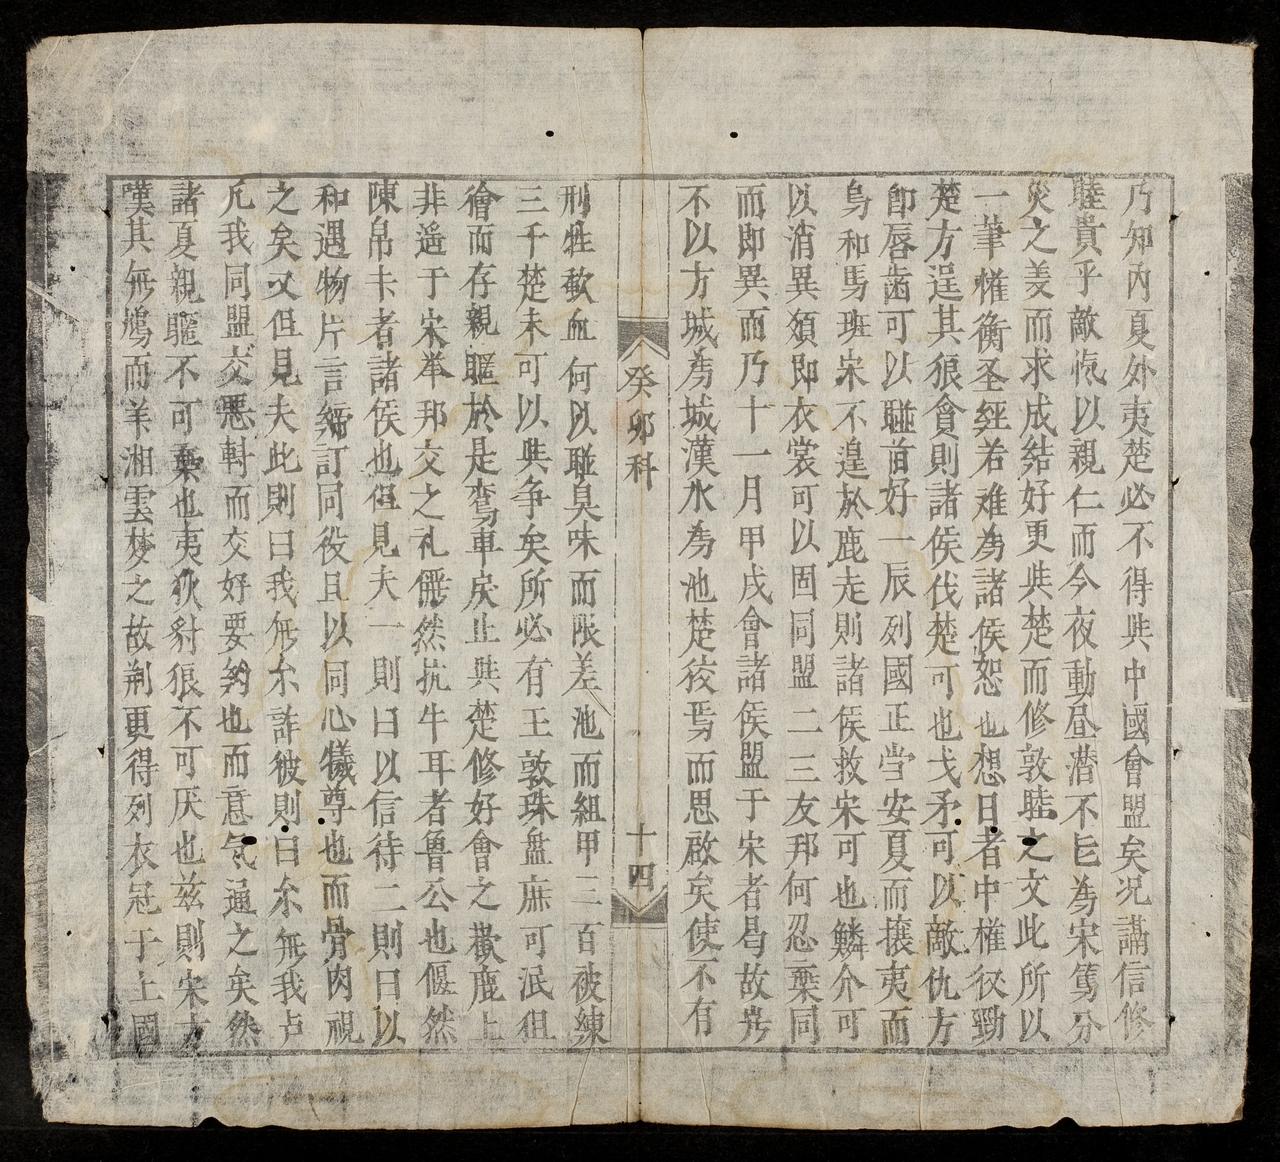 乃知內夏外夷楚必不得㪯中國會盟矣况講信修
睦貴乎敵愾以親仁而今夜動昼潜不㠯為宋篤分
災之姜而求成結好更㪯楚而修敦睦之文此所以
一筆權衡圣經若难為諸侯恕也想日者中權役勁
楚方逞其狼貪則諸侯伐楚可也戈矛可以敵仇方
即唇齒可以聮首好一辰列國正当安夏而攘夷而
烏和馬班宋不遑於鹿走則諸侯救宋可也鱗介可
以消異須即衣裳可以固同盟二三友邦何忍棄同
而即異而乃十一月甲戌會諸侯盟于宋者曷故岂
不以方城為城漢水為池楚狡焉而思啟矣使不有
癸卯科
十四
刑牲歃血何以聮臭味而限差池而組甲三百被練
三千楚未可以㪯争矣所必有王敦珠盘庶可泯狙
獪而存親䁥於是鸾車戾止㪯楚修好會之歡鹿上
非遥于宋举邦交之礼儼然抗牛耳者魯公也偃然
陳帛卡者諸侯也但見夫一則曰以信待二則曰以
和遇物片言締訂同役且以同心犧尊也而骨肉視
之矣又但見夫此則曰我無尒詐彼則曰尒無我卢
凡我同盟交惡斟而交好要约也而意気通之矣然
諸夏親䁥不可棄也夷狄豺狼不可厌也兹則宋方
嘆其無鳩而羊湘雲梦之故荆更得列衣冠于上國